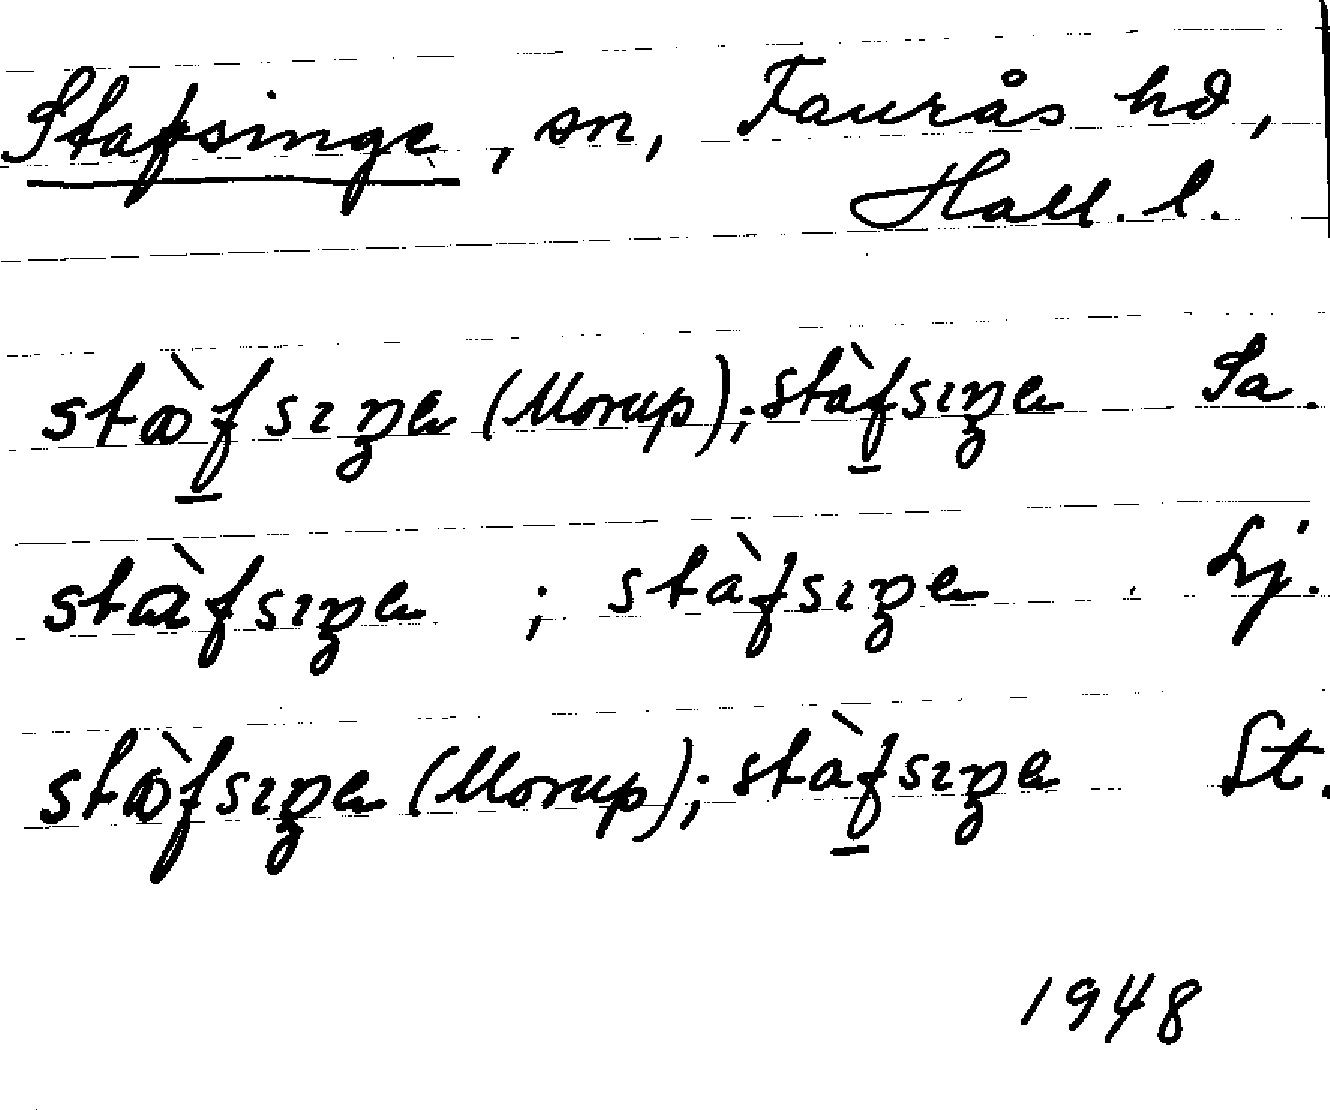 Stafsinge, sn, Faurås hd,
Hall. l.
stæ̀f̲sıŋɐ (Morup); stàf̲sıŋɐ Sa.
stæ̀fsıŋɐ ; stàfsıŋɐ Lj.
stæ̀fsıŋɐ (Morup); stàf̲sıŋɐ St.
1948